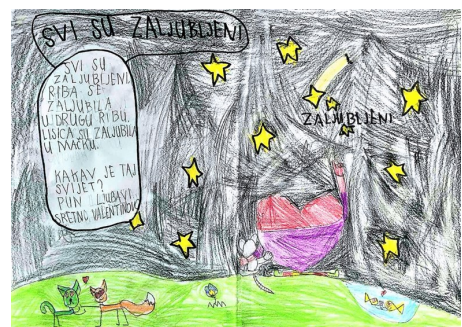 SVI SU ZALJUBLJENI
SVI SU
ZALJUBLJENI
RIBA SE
ZALJUBILA
U DRUGU RIBU.
LISICA SU ZALJUBILA
U MAČKU.
KAKAV JE TAJ
SVIJET?
PUN LJUBAVI
SRETNO VALENTINOVO
ZALJUBLJENI